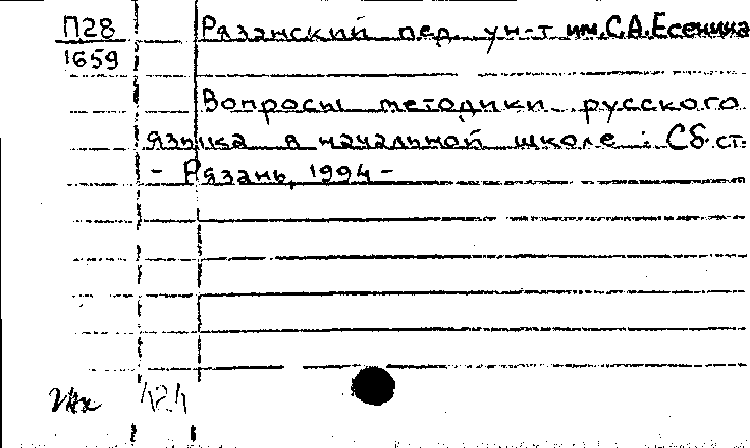 П28 Рязанский пед. ун-т им.С.А.Есенина
1659
Вопросы методики русского
языка в начальной школе : Сб. ст.
- Рязань, 1994 -